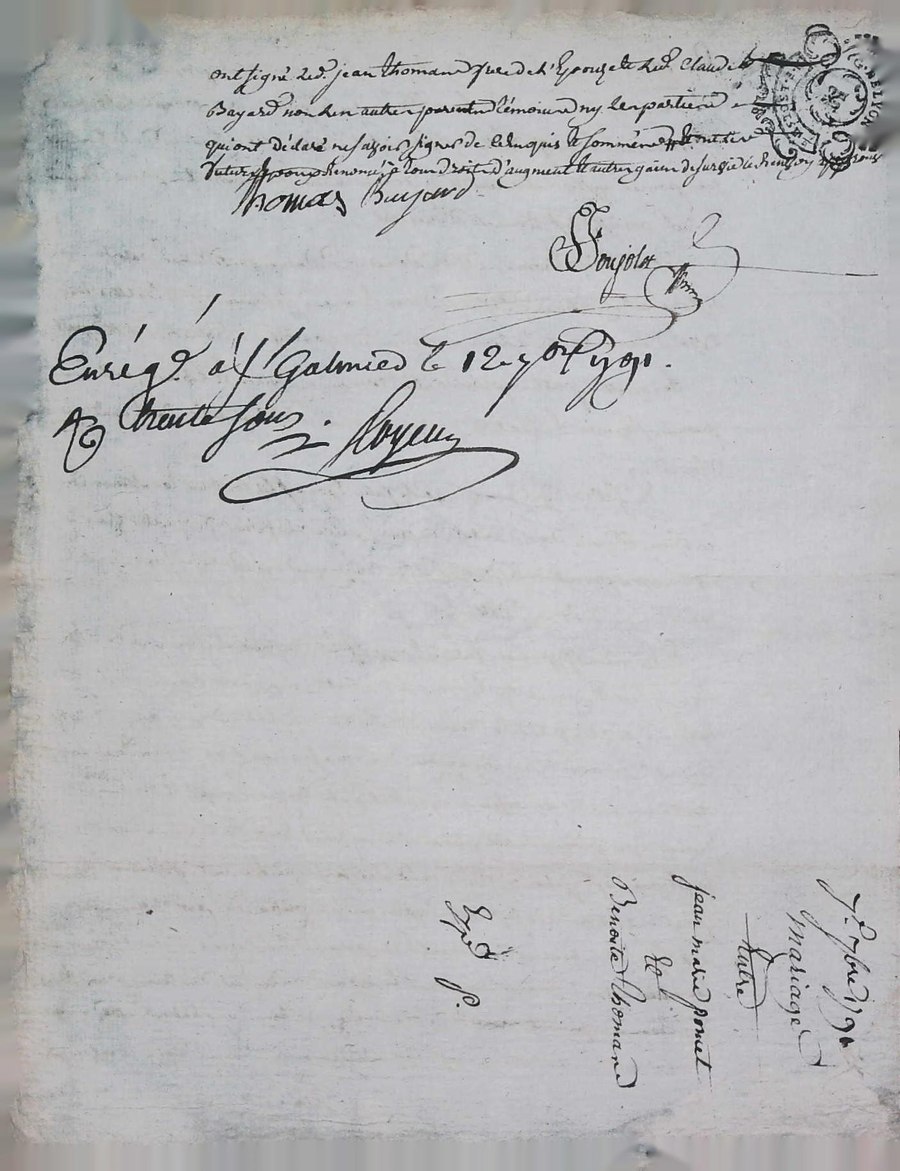 ont signé led. jean thomand frere de l'Epouze & led. Claude
Bayard non les autres parents témoins ny les parties
qui ont déclaré ne savoir signer de ce Enquis & sommés
futurs Epoux Renoncé à tous droits d'augment & autres gains de survie
thomas Bayard
Poujolat
Enrégé. à St Galmier le 12 7bre 1791.
R trente sous
7e. 7bre 179
Mariage
Entre
jean marie pomet
Et
Benoite thomand
Expd